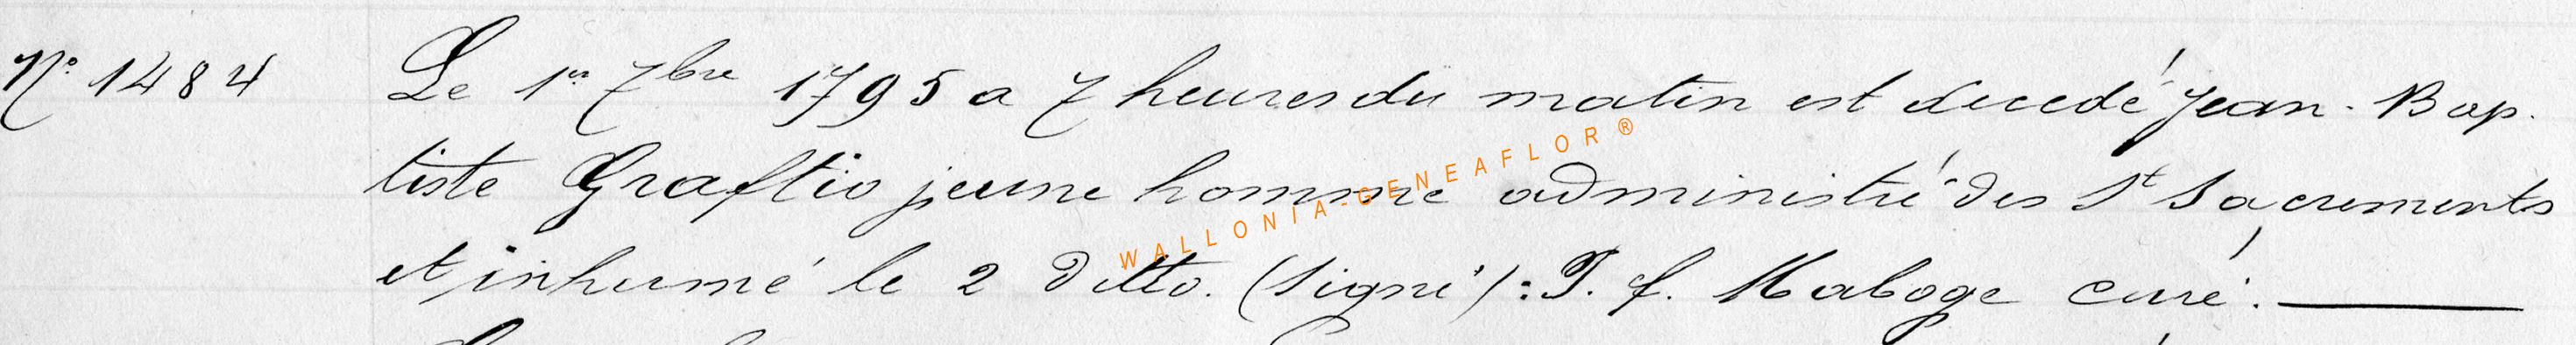 N° 1484 Le 1er 7bre 1795 a 7 heures du matin est decedé Jean-Bap.
tiste Graftio jeune homme administré des St Sacrements
et inhumé le 2 ditto. (Signé): J. f. Maboge curé.
WALLONIA-GENEAFLOR®